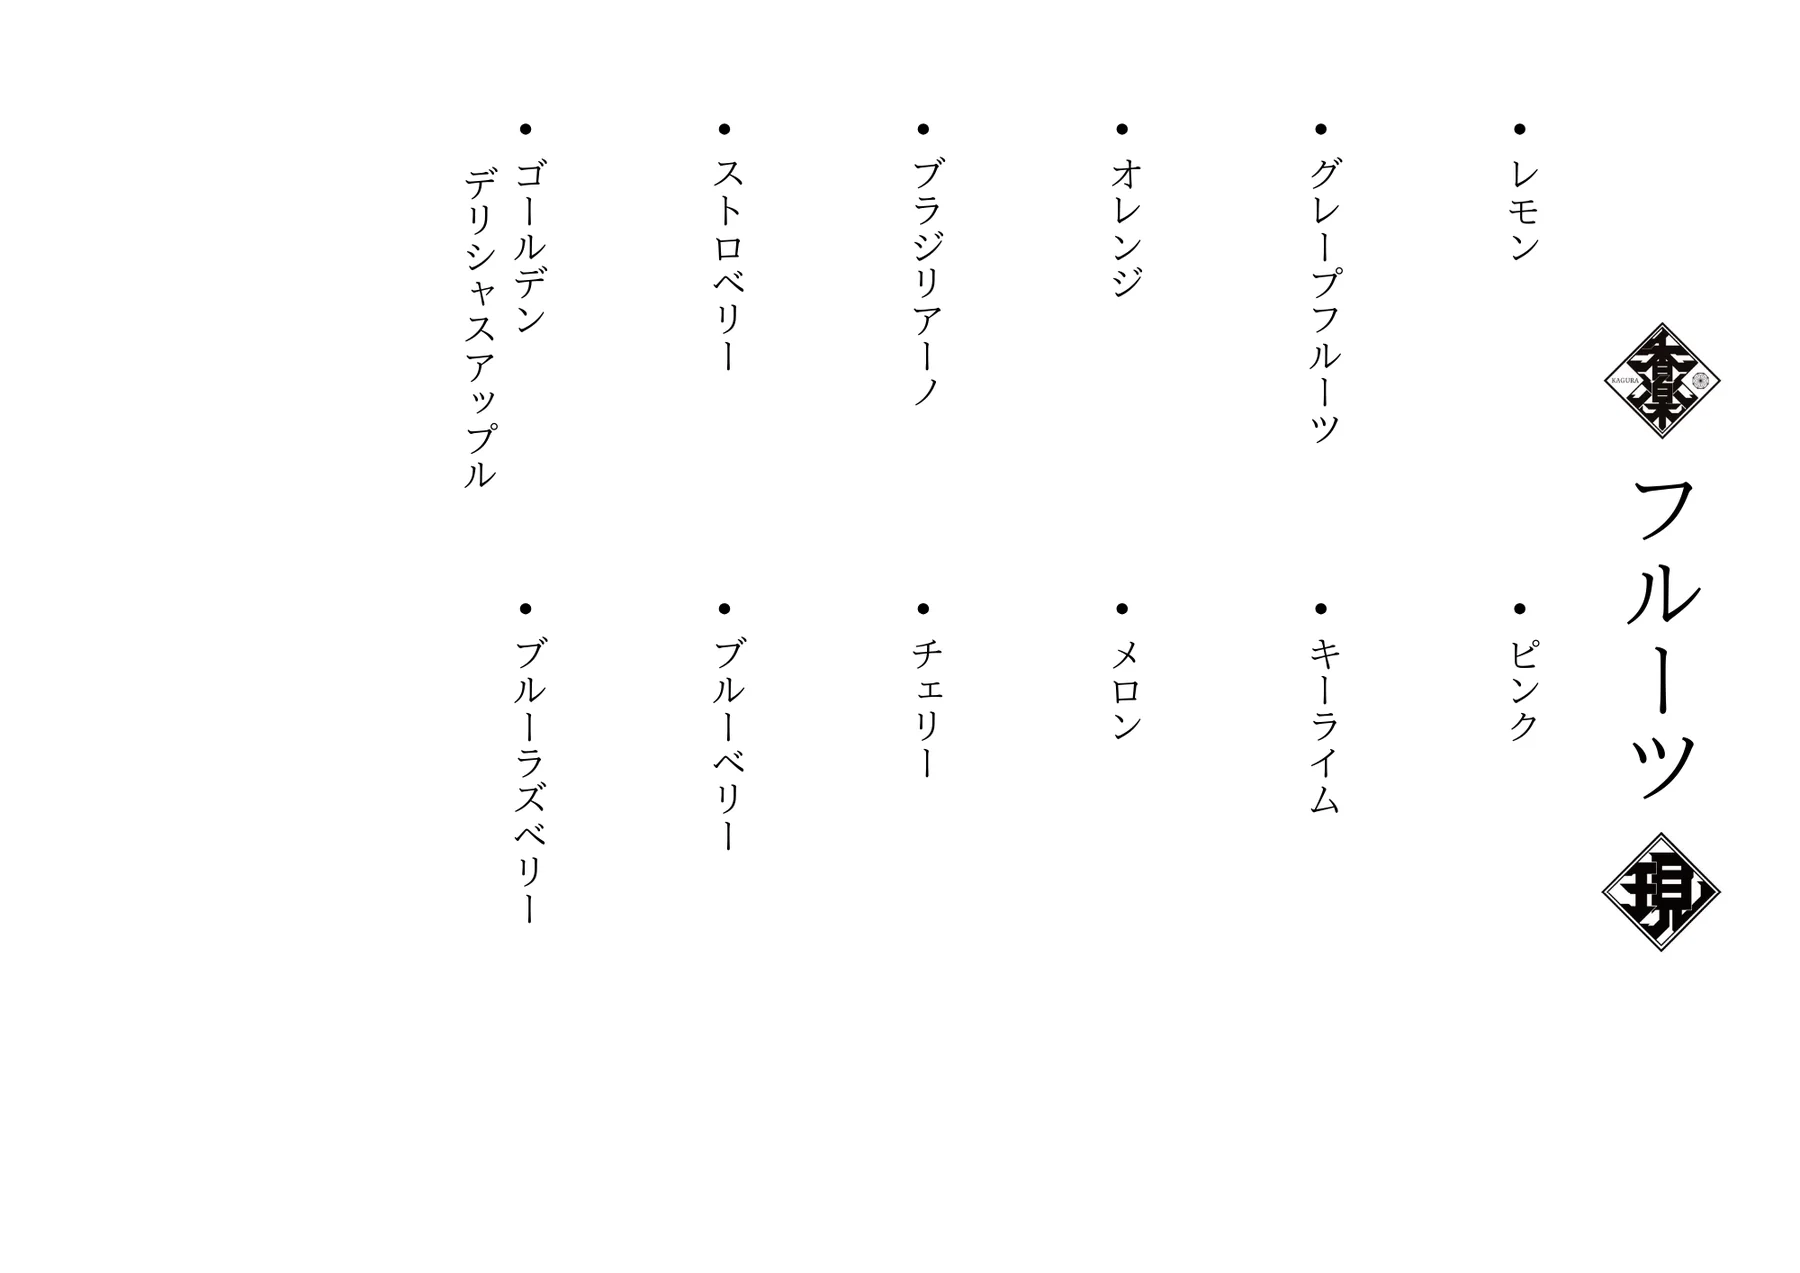 香楽
KAGURA
フルーツ
現
• レモン
• グレープフルーツ
• オレンジ
• ブラジリアーノ
• ストロベリー
• ゴールデン
デリシャスアップル
• ピンク
• キーライム
• メロン
• チェリー
• ブルーベリー
• ブルーラズベリー